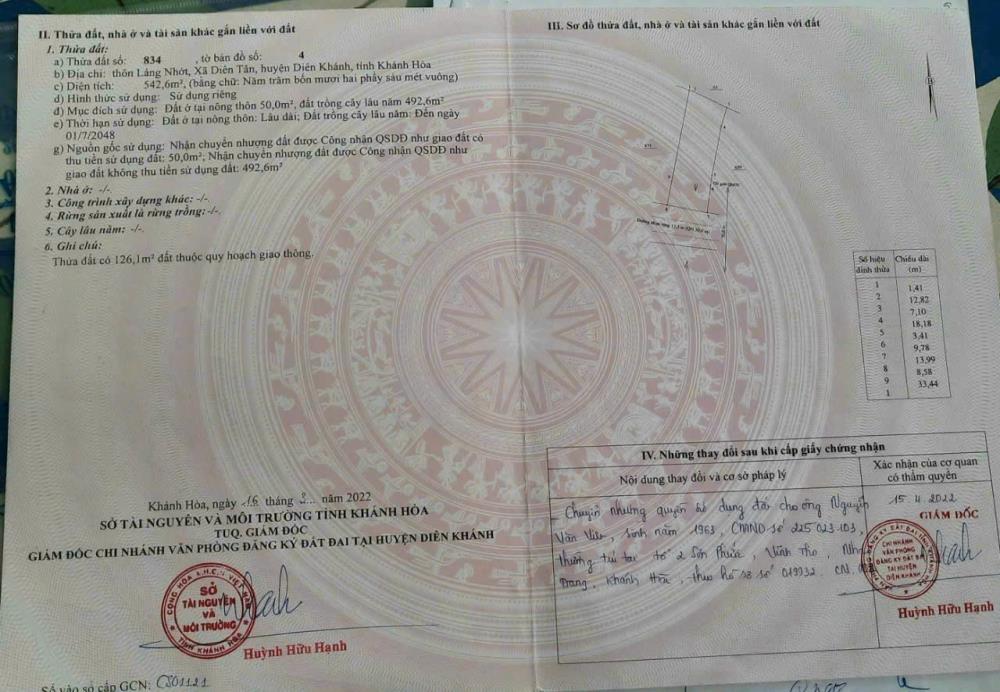 II. Thửa đất, nhà ở và tài sản khác gắn liền với đất
1. Thửa đất:
a) Thửa đất số: 834 , tờ bản đồ số: 4
b) Địa chỉ: thôn Láng Nhớt, Xã Diên Tân, huyện Diên Khánh, tỉnh Khánh Hòa
c) Diện tích: 542,6m², (bằng chữ: Năm trăm bốn mươi hai phẩy sáu mét vuông)
d) Hình thức sử dụng: Sử dụng riêng
đ) Mục đích sử dụng: Đất ở tại nông thôn 50,0m², đất trồng cây lâu năm 492,6m²
e) Thời hạn sử dụng: Đất ở tại nông thôn: Lâu dài; Đất trồng cây lâu năm: Đến ngày
01/7/2048
g) Nguồn gốc sử dụng: Nhận chuyển nhượng đất được Công nhận QSDĐ như giao đất có
thu tiền sử dụng đất: 50,0m²; Nhận chuyển nhượng đất được Công nhận QSDĐ như
giao đất không thu tiền sử dụng đất: 492,6m²
2. Nhà ở: -/-.
3. Công trình xây dựng khác: -/-.
4. Rừng sản xuất là rừng trồng: -/-.
5. Cây lâu năm: -/-.
6. Ghi chú:
Thửa đất có 126,1m² đất thuộc quy hoạch giao thông.
Khánh Hòa, ngày 16 tháng 3 năm 2022
SỞ TÀI NGUYÊN VÀ MÔI TRƯỜNG TỈNH KHÁNH HÒA
TUQ. GIÁM ĐỐC
GIÁM ĐỐC CHI NHÁNH VĂN PHÒNG ĐĂNG KÝ ĐẤT ĐAI TẠI HUYỆN DIÊN KHÁNH
SỞ
TÀI NGUYÊN
VÀ
MÔI TRƯỜNG
TỈNH KHÁNH HÒA
Huỳnh Hữu Hạnh
Số vào sổ cấp GCN: CS01121
III. Sơ đồ thửa đất, nhà ở và tài sản khác gắn liền với đất
Số hiệu đỉnh thửa Chiều dài (m)
1
1,41
2
12,82
3
7,10
4
18,18
5
3,41
6
9,78
7
13,99
8
8,58
9
33,44
1
IV. Những thay đổi sau khi cấp giấy chứng nhận
Nội dung thay đổi và cơ sở pháp lý
Xác nhận của cơ quan
có thẩm quyền
- Chuyển nhượng quyền sử dụng đất cho ông Nguyễn
Văn , sinh năm 1963, CMND số 225 023 103,
thường trú tại tổ 2 Sơn Phước, Vĩnh Thọ, Nha
Trang, Khánh Hòa, theo hồ sơ số 019932. CN.
15. 4. 2022
GIÁM ĐỐC
CHI NHÁNH
VĂN PHÒNG
ĐĂNG KÝ ĐẤT ĐAI
TẠI HUYỆN
DIÊN KHÁNH
Huỳnh Hữu Hạnh